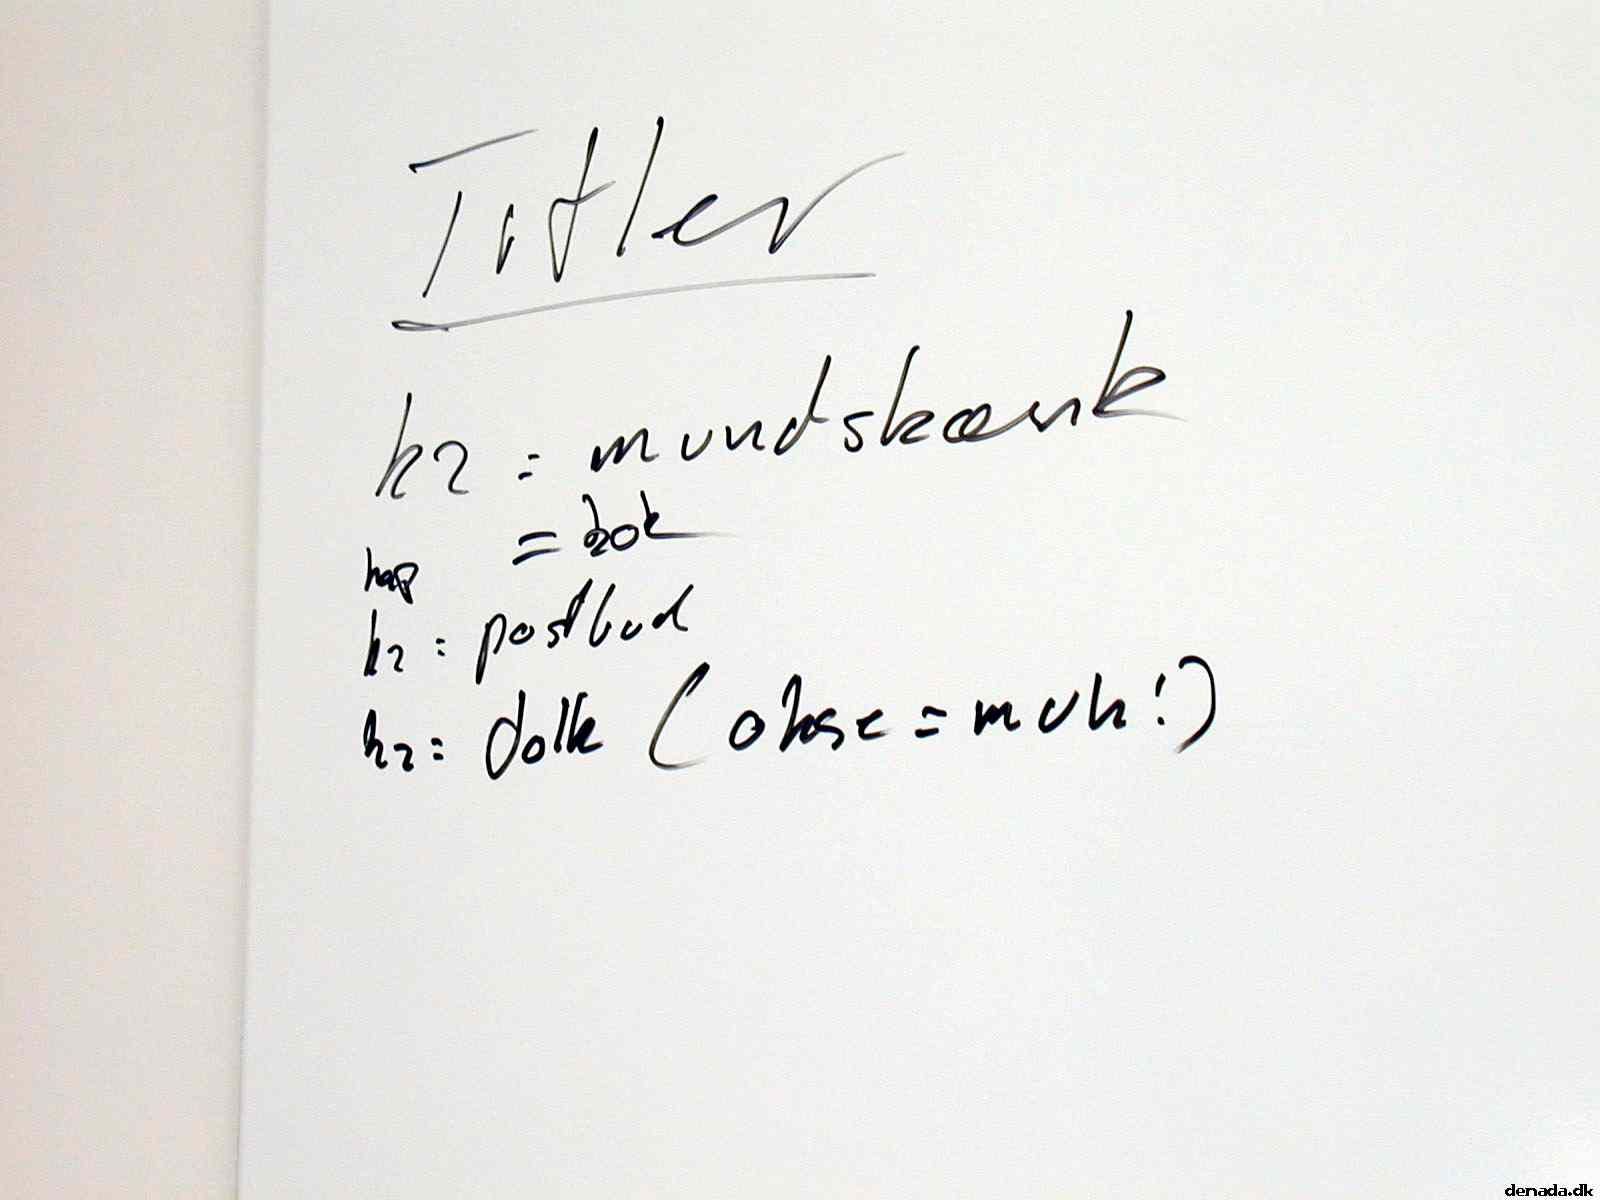 Titler
k2 = mundskænk
= kok
hop
k2 = postbud
k2 = dolk (okse = muh!)
denada.dk